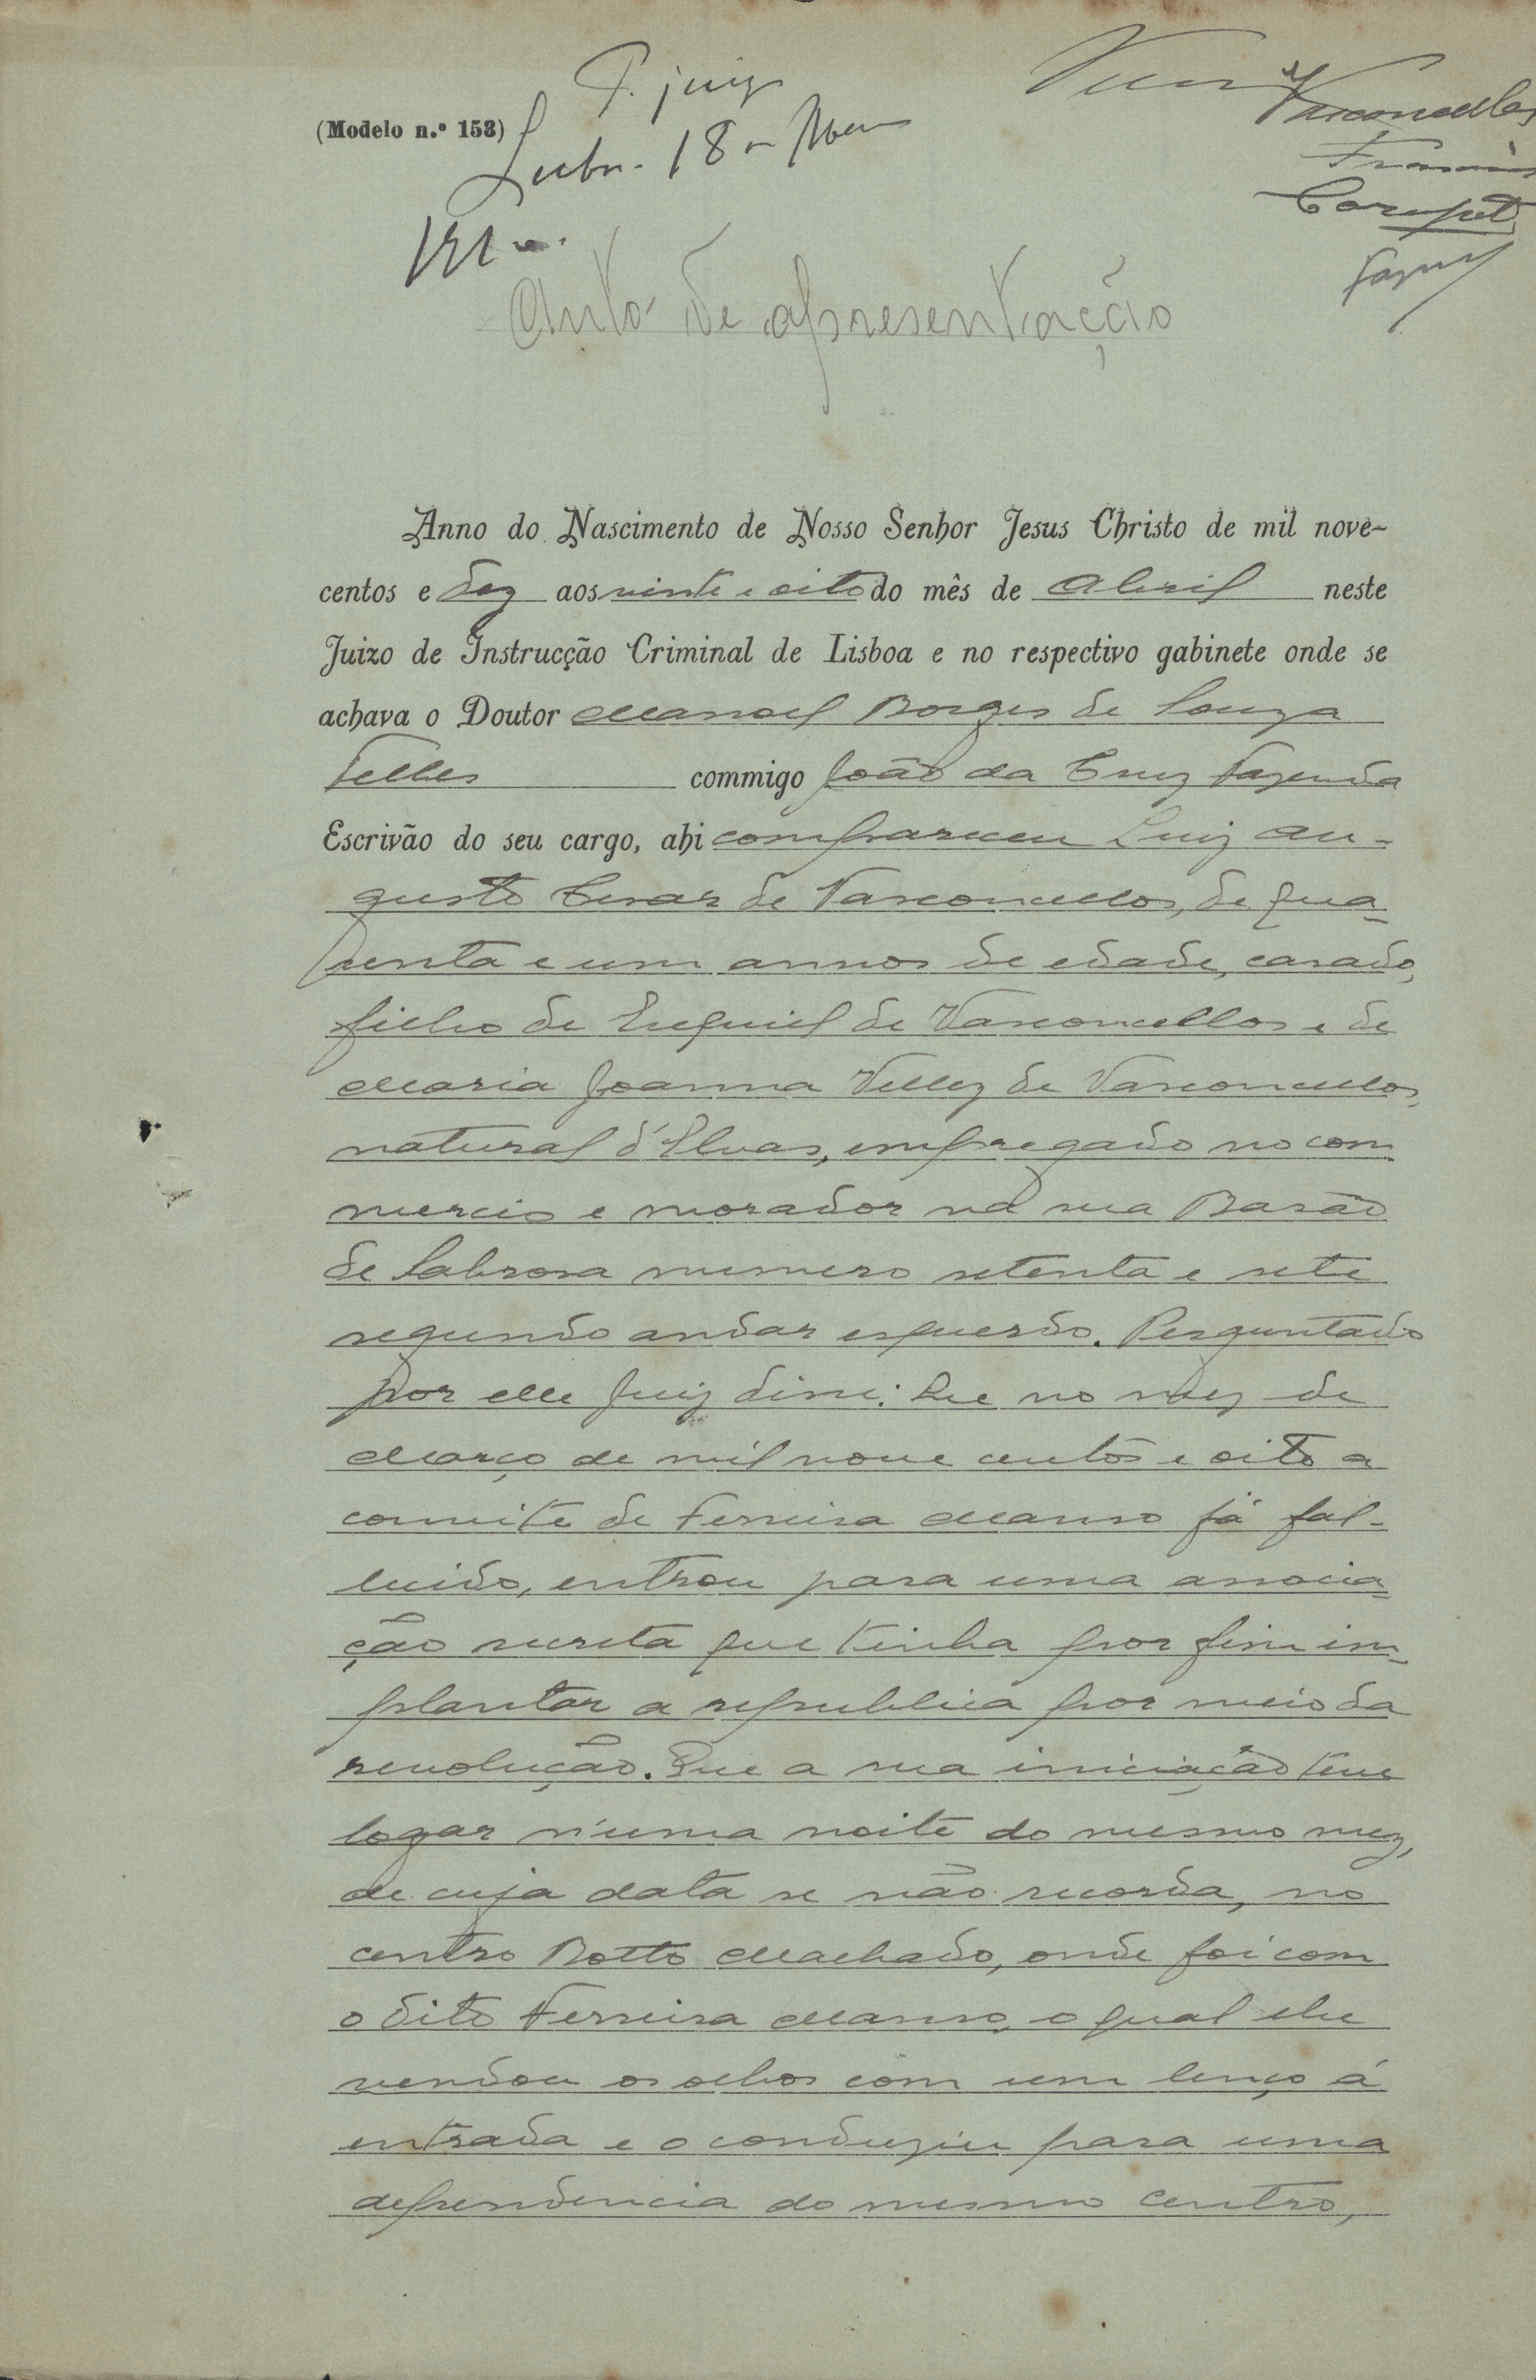 (Modelo n.º 153)
P. juiz
18
Vasconcellos
Auto de apresentação
Anno do Nascimento de Nosso Senhor Jesus Christo de mil nove-
centos e dez aos vinte e oito do mês de Abril neste
Juizo de Instrucção Criminal de Lisboa e no respectivo gabinete onde se
achava o Doutor Manoel Borges de Souza
Telles commigo João da Cruz Fazenda
Escrivão do seu cargo, ahi compareceu Luiz Au-
gusto Cesar de Vasconcellos, de qua-
renta e um annos de edade, casado,
filho de Ezequiel de Vasconcellos e de
Maria Joanna Vellez de Vasconcellos,
natural d'Elvas, empregado no com
mercio e morador na rua Barão
de Sabrosa numero setenta e sete
segundo andar esquerdo. Perguntado
por elle Juiz disse: Que no mez de
Março de mil nove centos e oito a
convite de Ferreira Manso já fal-
lecido, entrou para uma associa-
ção secreta que tinha por fim im-
plantar a republica por meio da
revolução. Que a sua iniciação teve
logar n'uma noite do mesmo mez,
de cuja data se não recorda, no
centro Botto Machado, onde foi com
o dito Ferreira Manso, o qual lhe
vendou os olhos com um lenço á
entrada e o conduziu para uma
dependencia do mesmo centro,